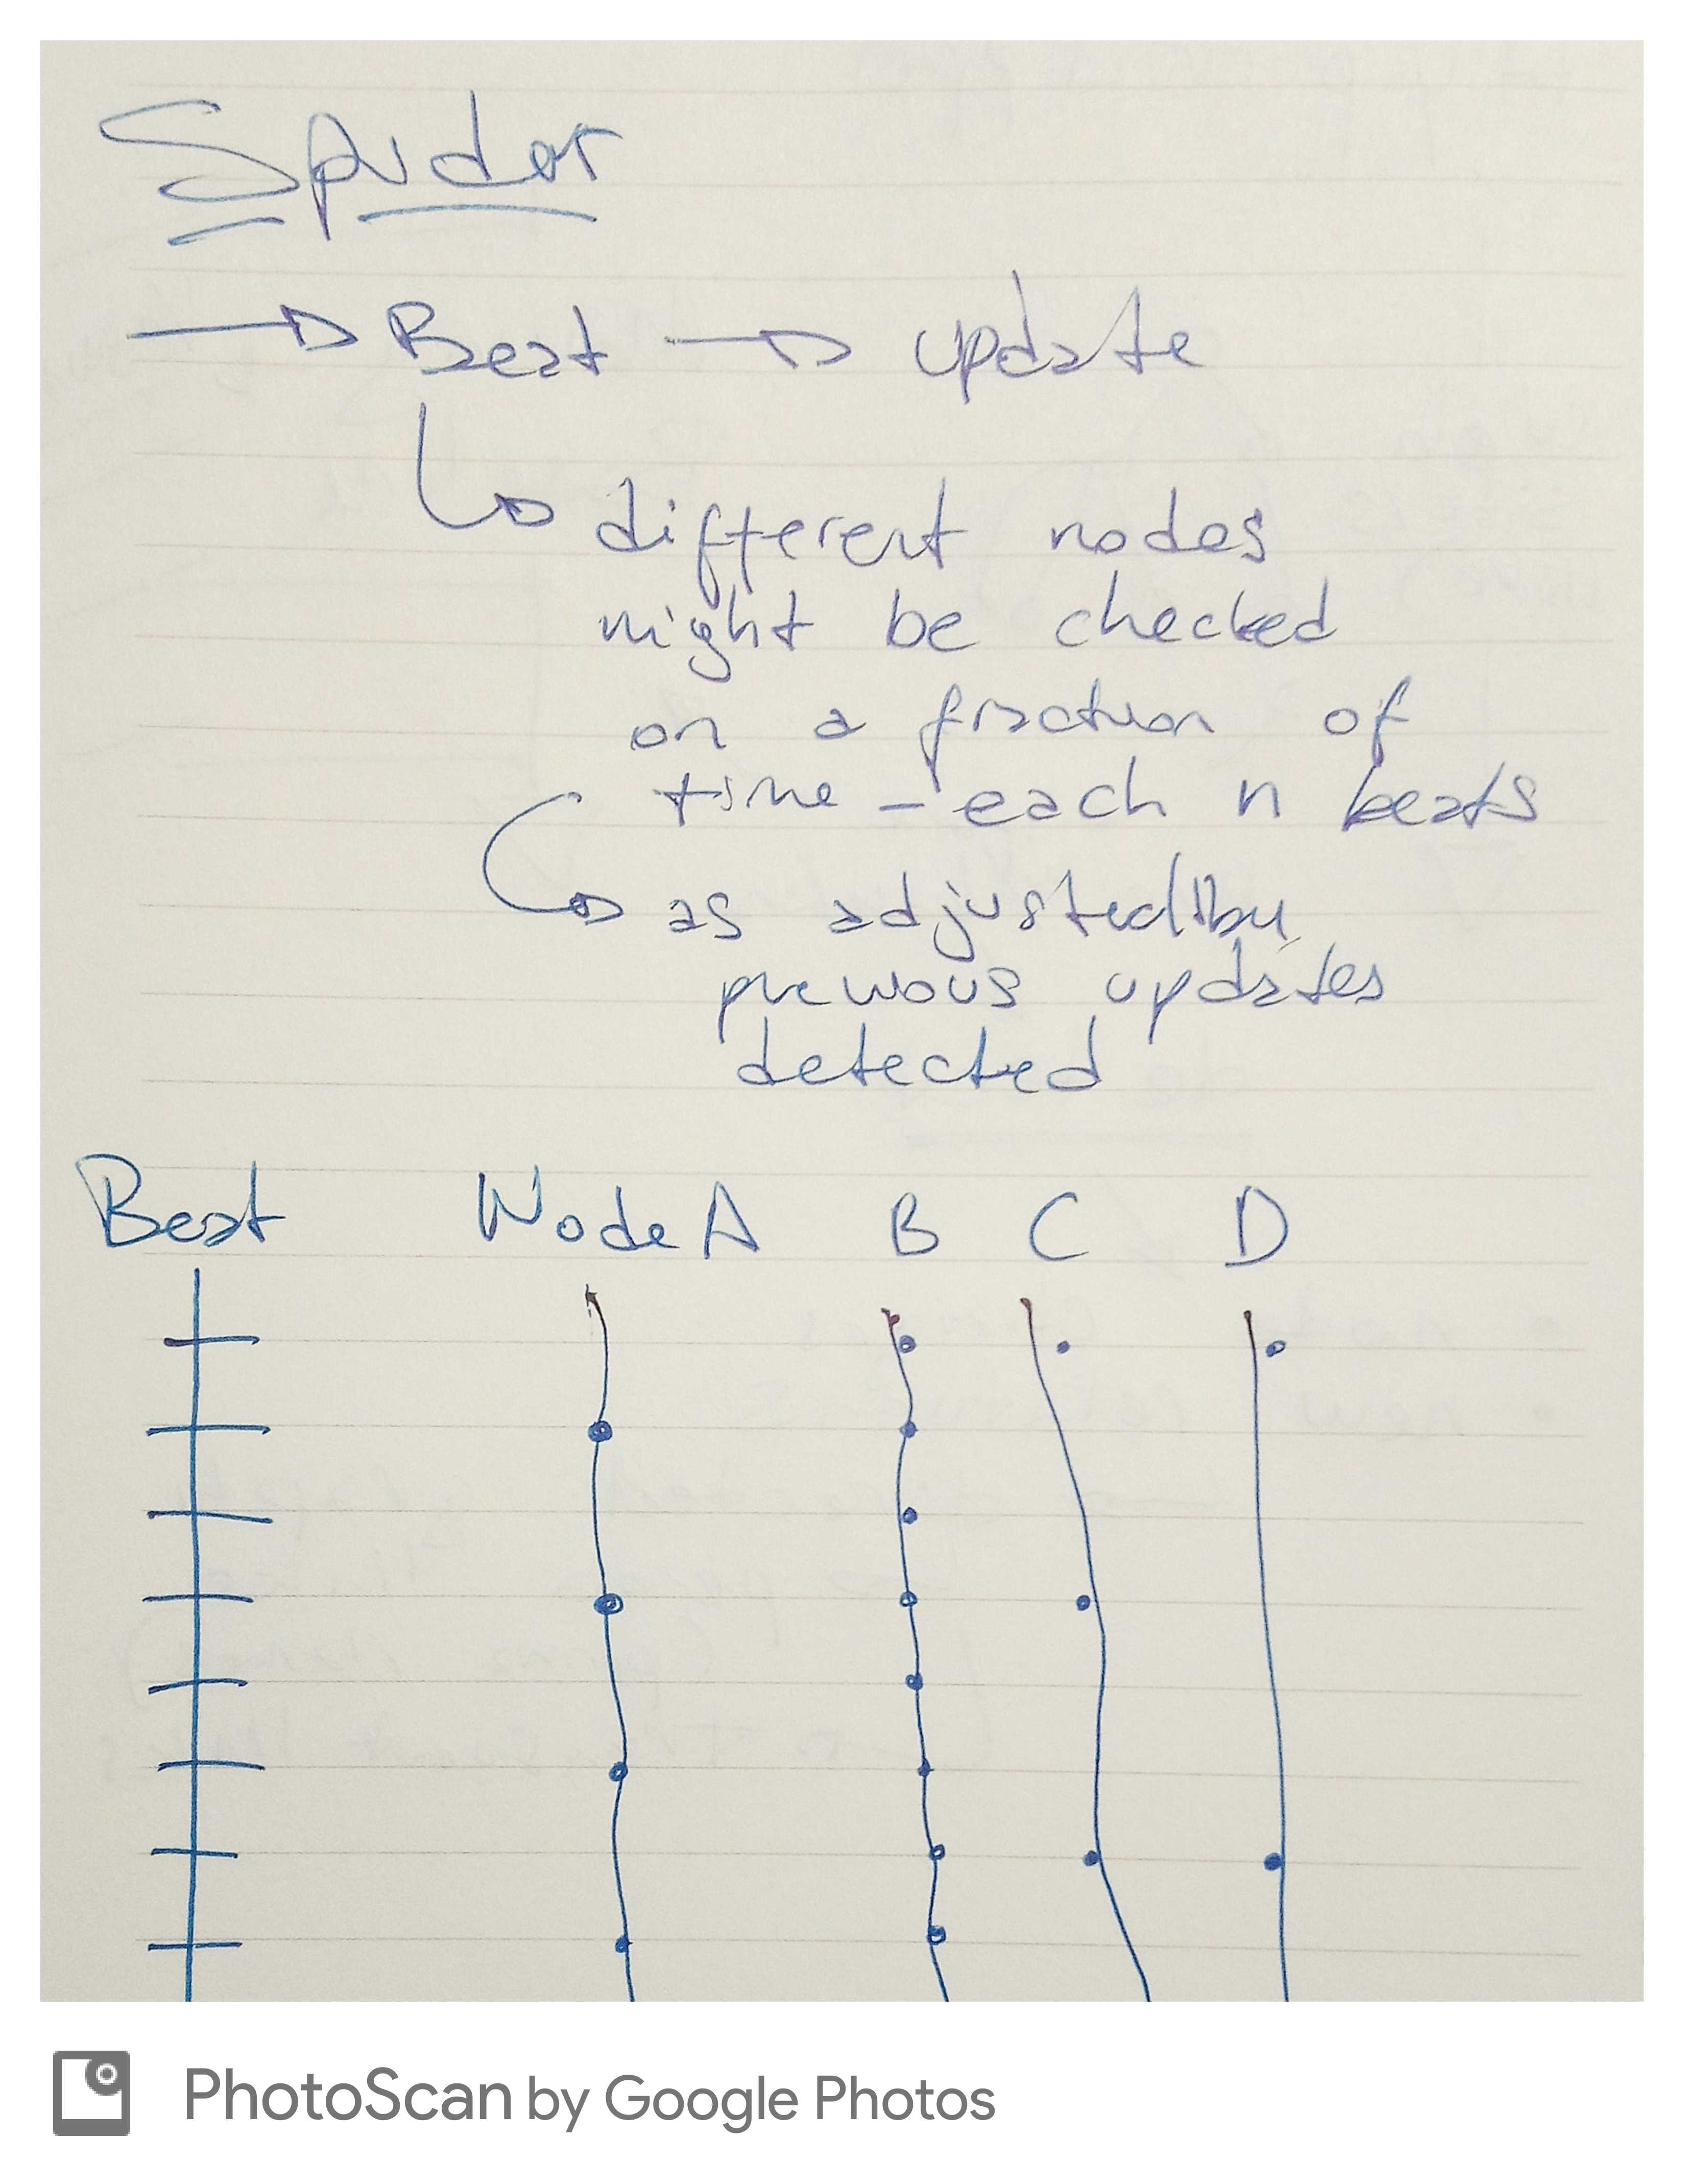 Spider
→ Beat → update
↳ different nodes
might be checked
on a fraction of
time - each n beats
↳ as adjusted by
previous updates
detected
Beat Node A B C D
PhotoScan by Google Photos